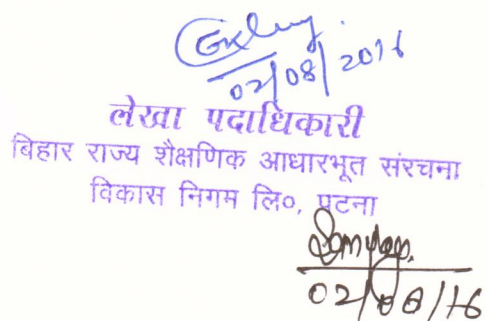 02/08/2016
लेखा पदाधिकारी
बिहार राज्य शैक्षणिक आधारभूत संरचना
विकास निगम लि०, पटना
02/08/16